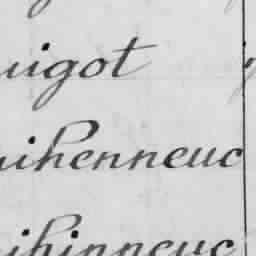 uigot
uihenneuc
uihinneuc